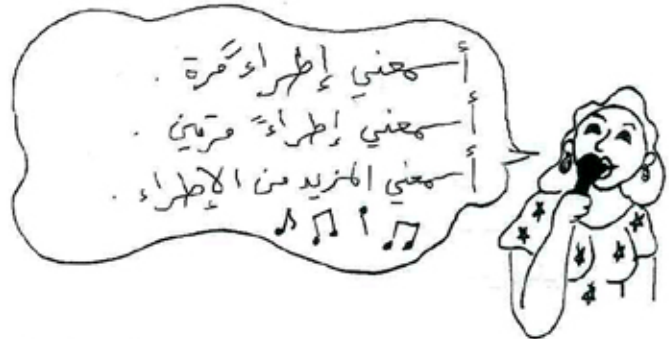 أسمعني إطراءً مرة .
أسمعني إطراءً مرتين .
أسمعني المزيد من الإطراء .